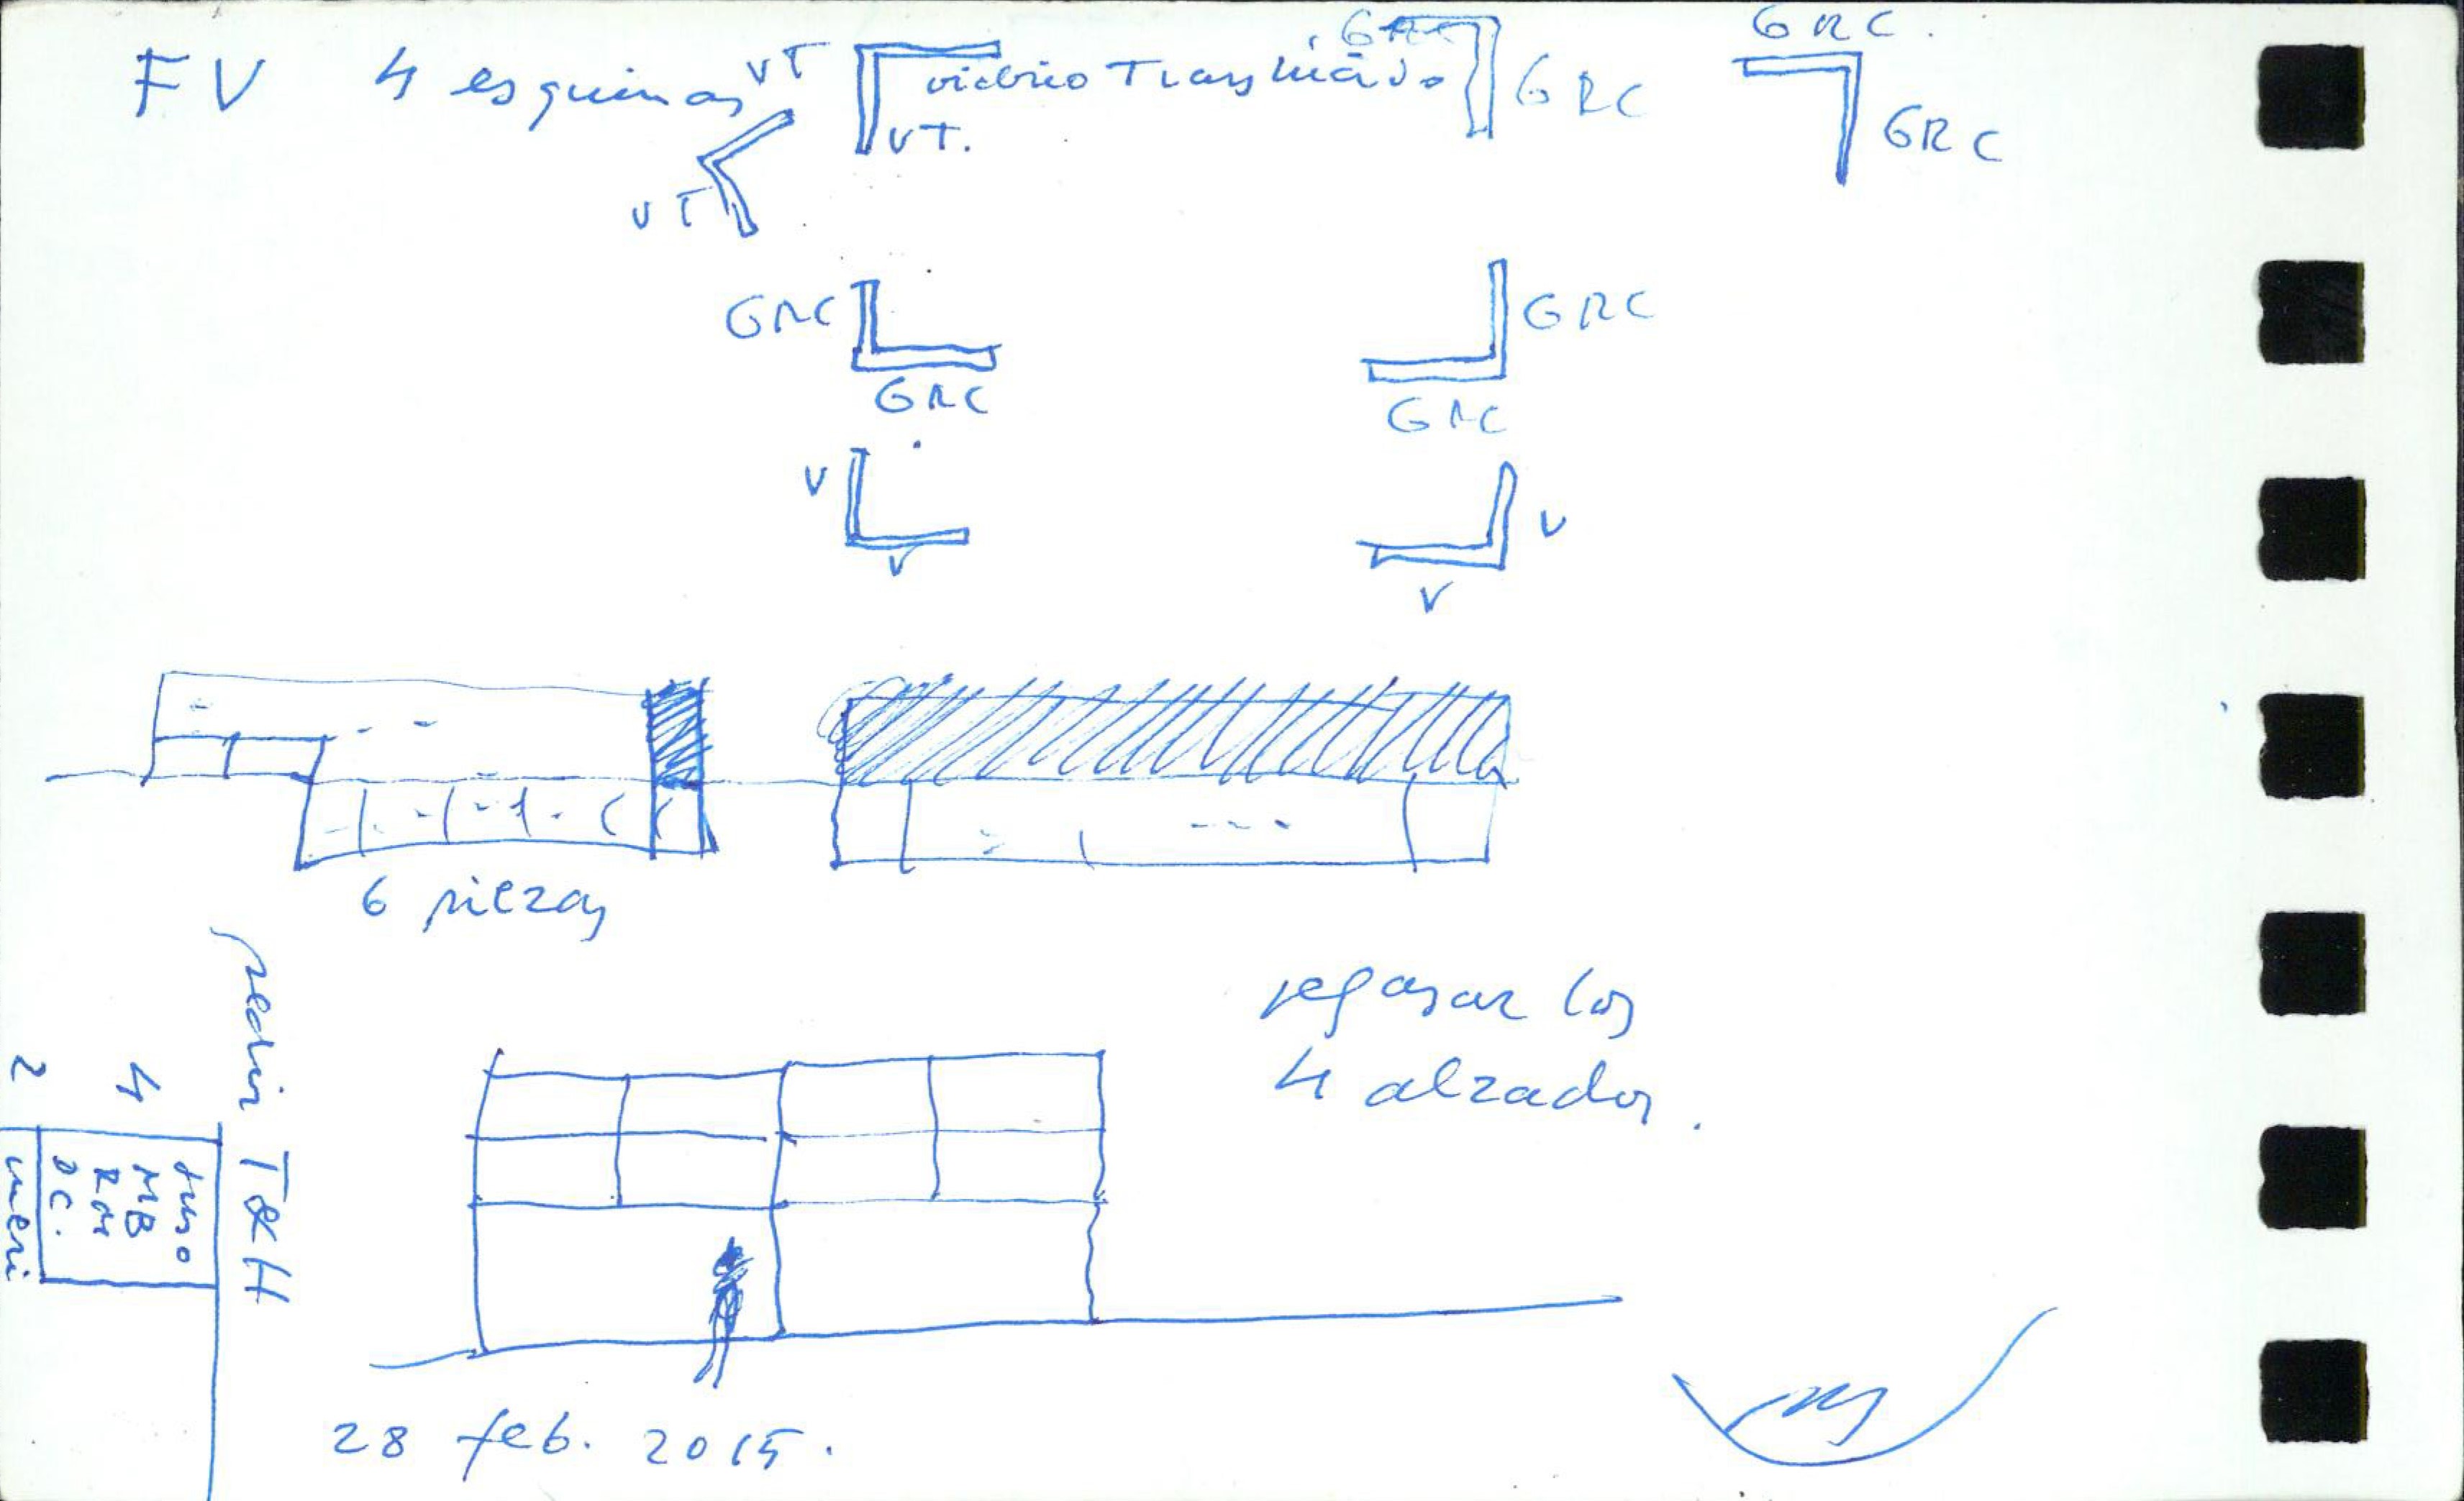 FV 4 esquinas VT vidrio Translúcido GRC GRC GRC.
VT. GRC
VT
GRC GRC
GRC GRC
V V
V V
6 piezas
repasar los
4 alzados.
pedir T&H
4
MB
DC.
2
28 feb. 2015.